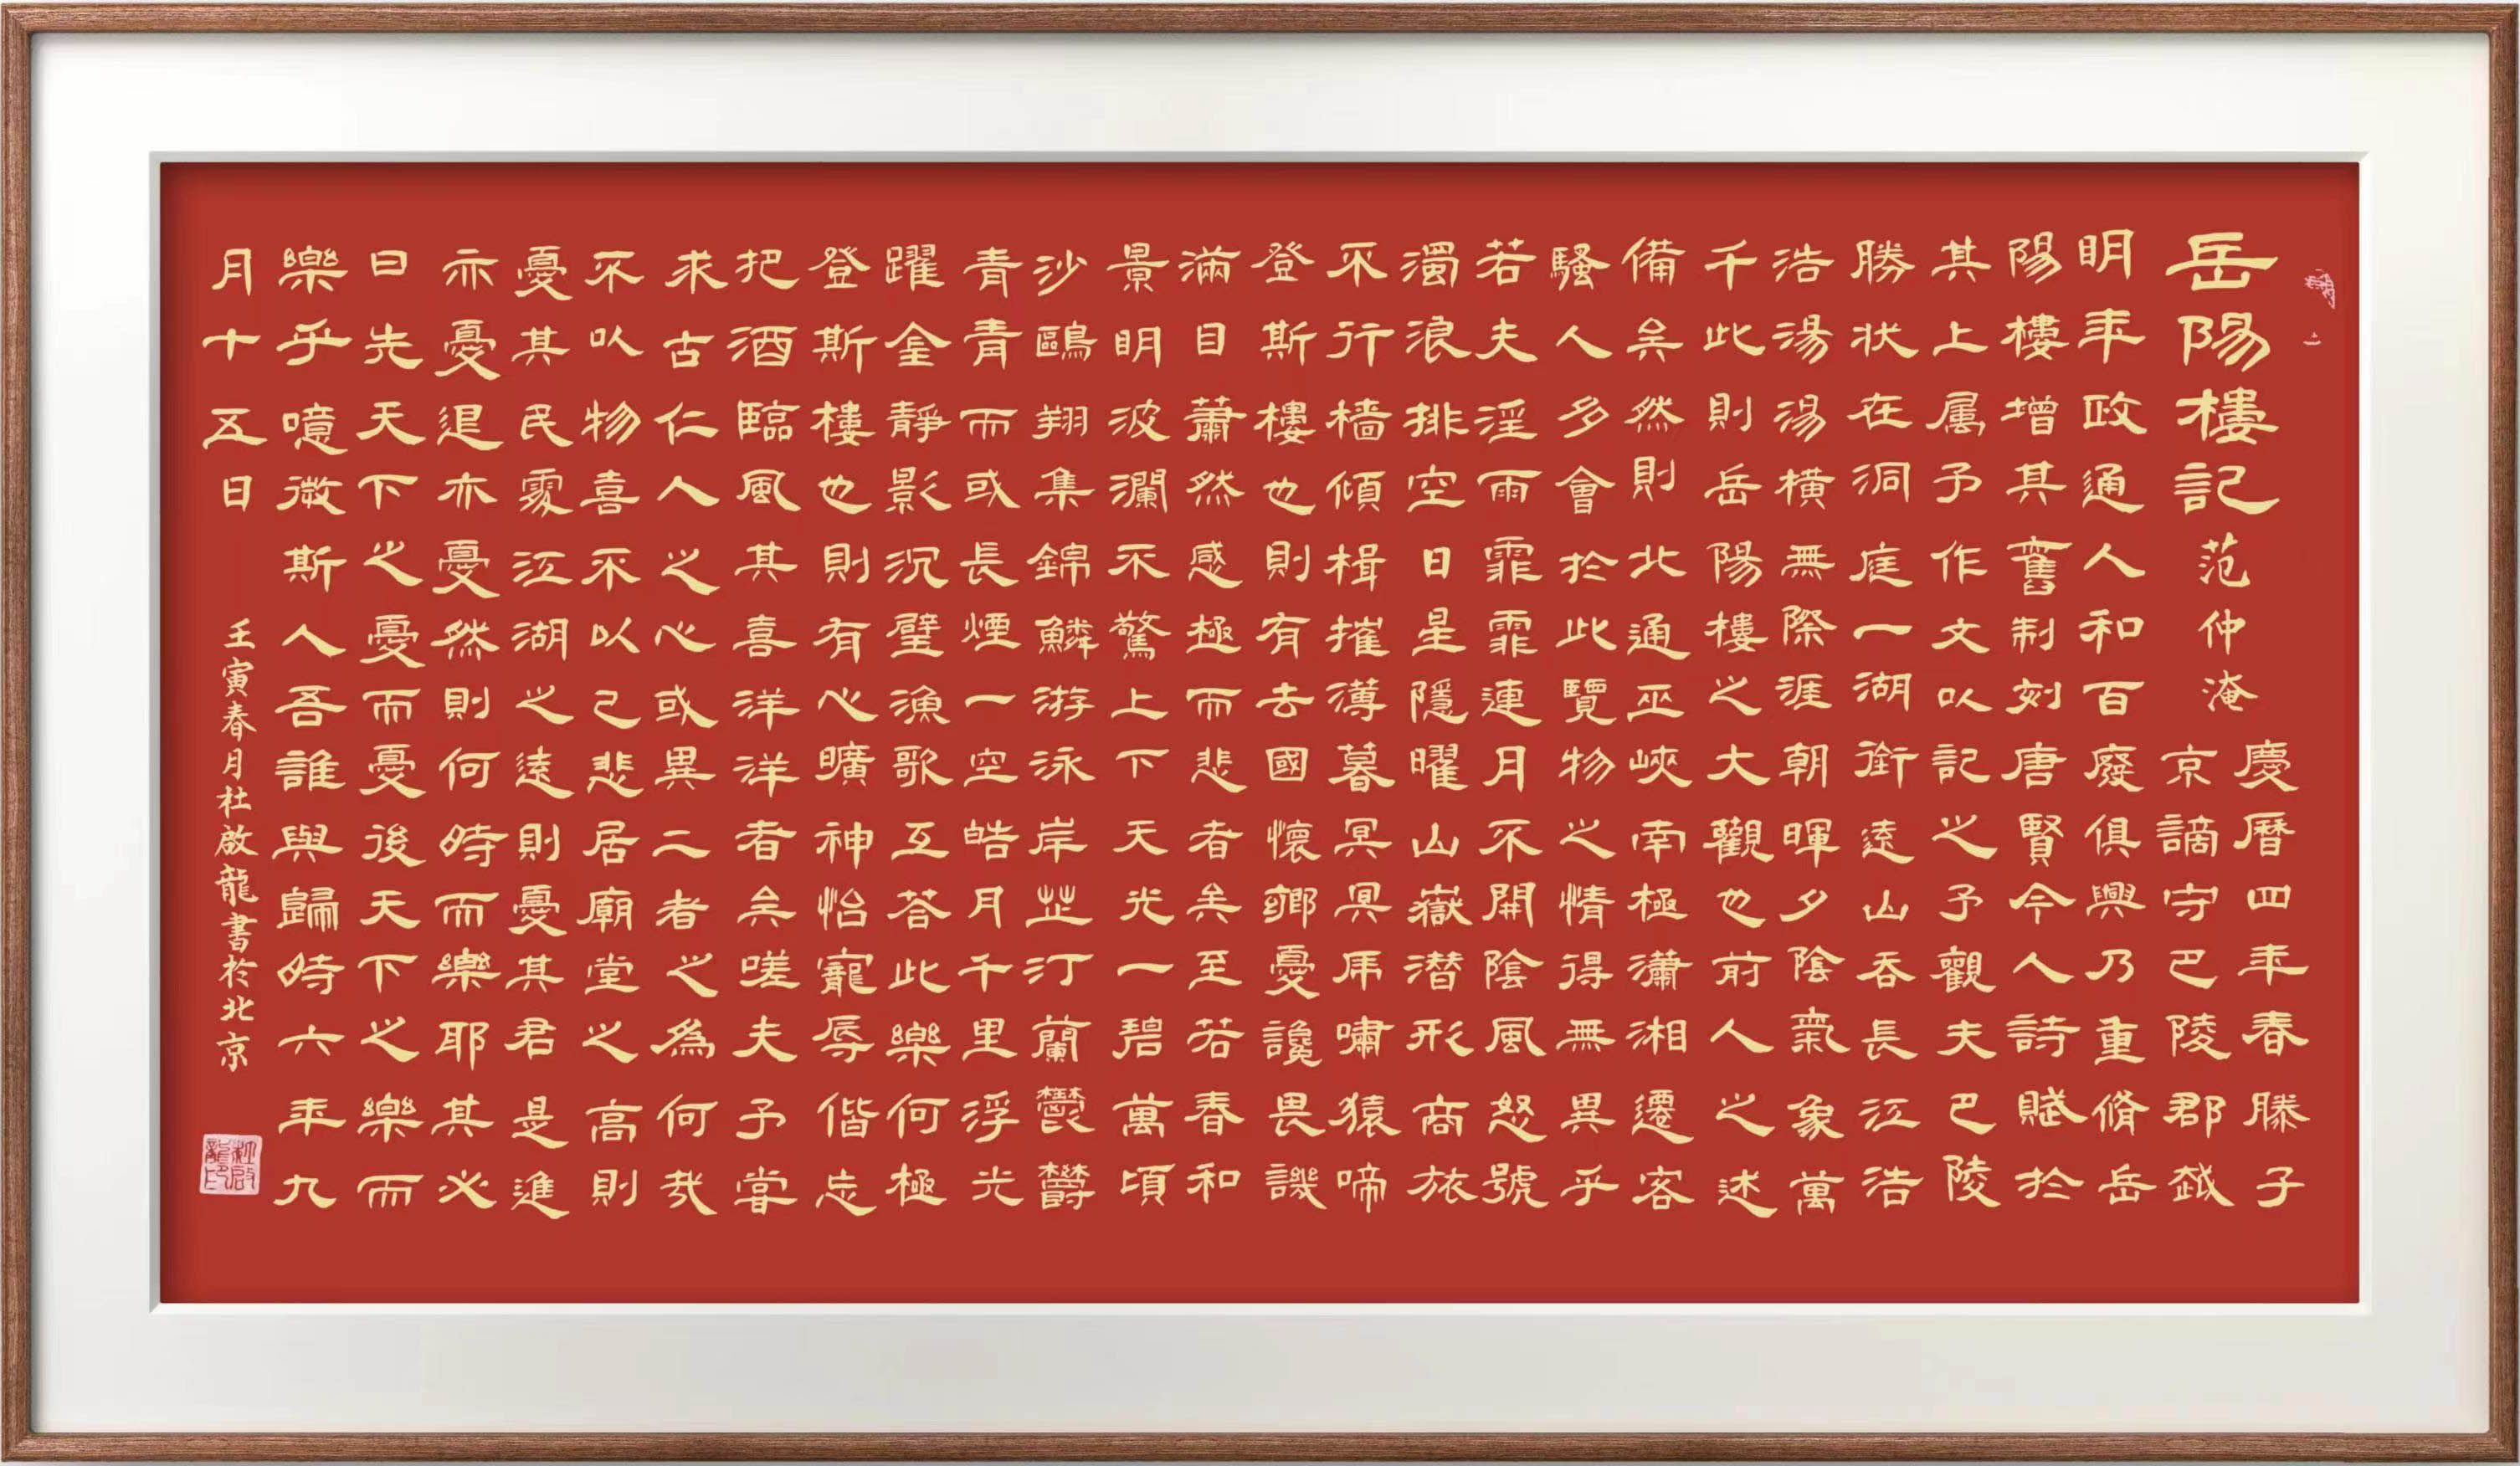 岳陽樓記
范仲淹
慶曆四年春滕子
京謫守巴陵郡越
明年政通人和百廢俱興乃重脩岳
陽樓增其舊制刻唐賢今人詩賦於
其上属予作文以記之予觀夫巴陵
勝状在洞庭一湖銜遠山吞長江浩
浩湯湯橫無際涯朝暉夕陰氣象萬
千此則岳陽樓之大觀也前人之述
備矣然則北通巫峽南極瀟湘遷客
騷人多會於此覽物之情得無異乎
若夫淫雨霏霏連月不開陰風怒號
濁浪排空日星隱曜山嶽潜形商旅
不行檣傾楫摧薄暮冥冥虎嘯猿啼
登斯樓也則有去國懷鄉憂讒畏譏
滿目蕭然感極而悲者矣至若春和
景明波瀾不驚上下天光一碧萬頃
沙鷗翔集錦鱗游泳岸芷汀蘭鬱鬱
青青而或長煙一空皓月千里浮光
躍金靜影沉璧漁歌互答此樂何極
登斯樓也則有心曠神怡寵辱偕忘
把酒臨風其喜洋洋者矣嗟夫予嘗
求古仁人之心或異二者之為何哉
不以物喜不以己悲居廟堂之高則
憂其民處江湖之遠則憂其君是進
亦憂退亦憂然則何時而樂耶其必
曰先天下之憂而憂後天下之樂而
樂乎噫微斯人吾誰與歸時六年九
月十五日
壬寅春月杜啟龍書於北京